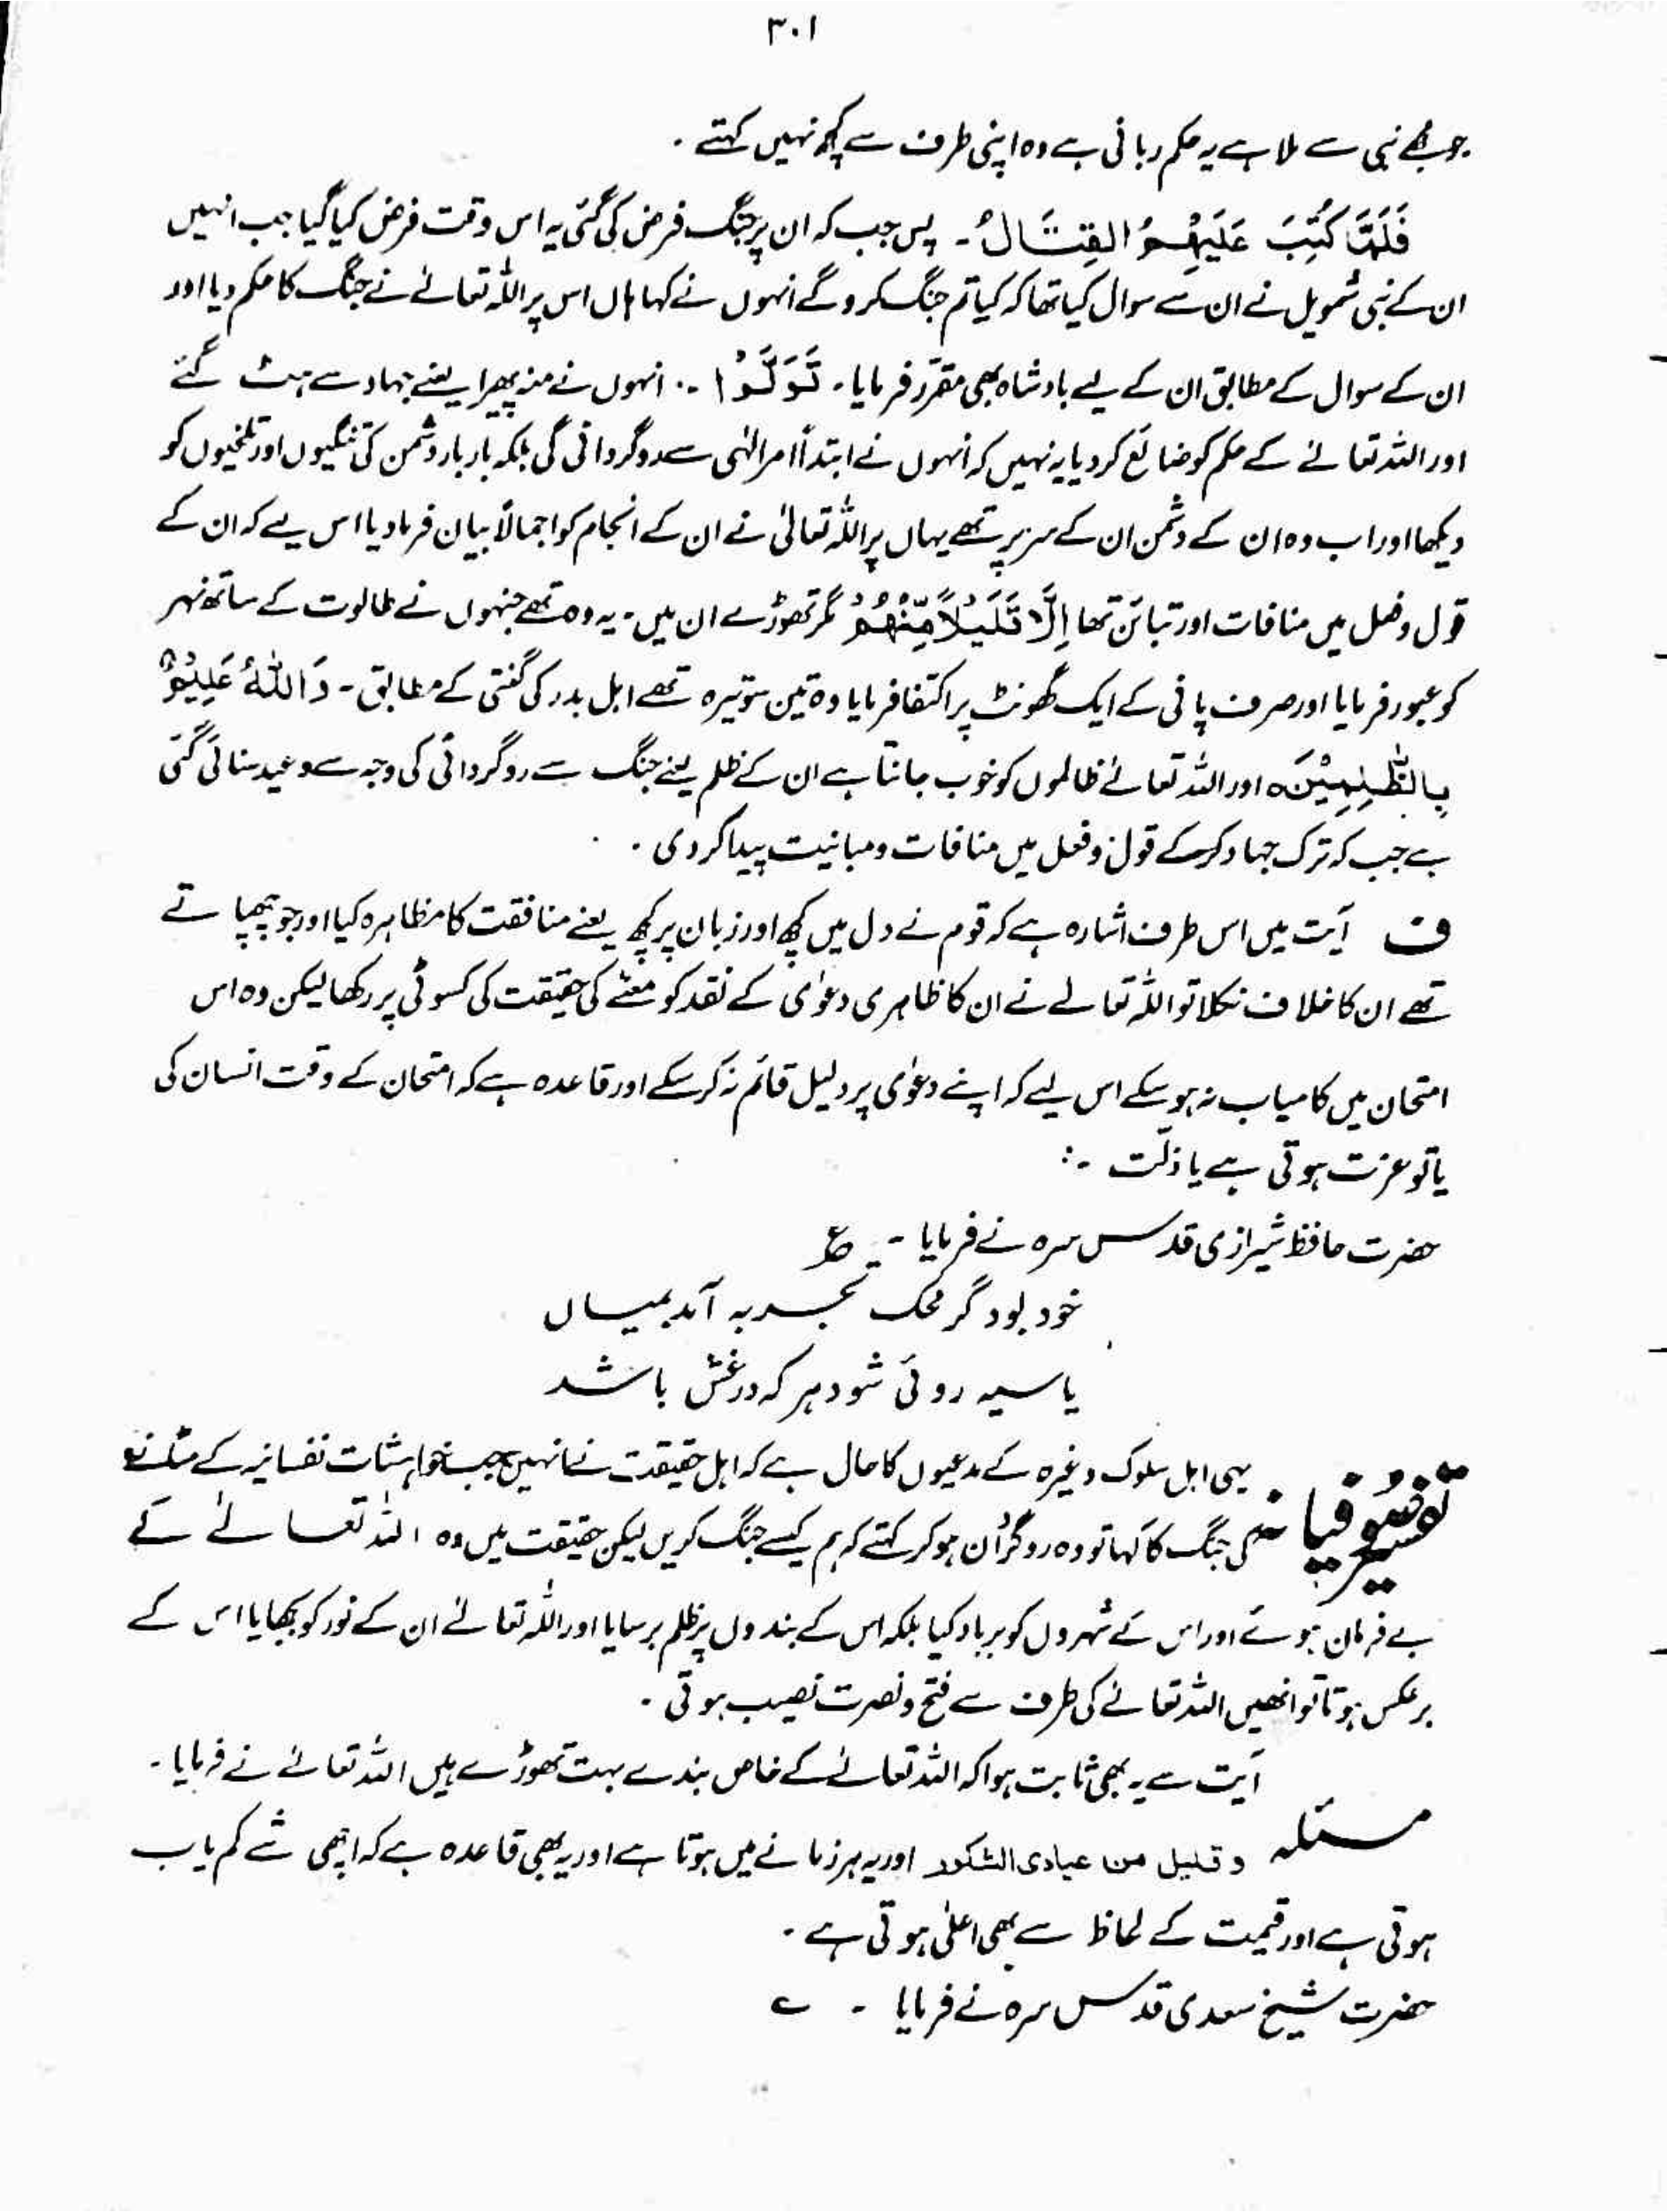 ۳۰۱
جو مجھے نبی سے ملا ہے یہ حکم ربانی ہے وہ اپنی طرف سے کچھ نہیں کہتے ۔
فَلَمَّا كُتِبَ عَلَيْهِمُ القِتَالُ ۔ پس جب کہ ان پر جنگ فرض کی گئی یہ اس وقت فرض کیا گیا جب انہیں
ان کے نبی شمویل نے ان سے سوال کیا تھا کہ کیا تم جنگ کرو گے انہوں نے کہا ہاں اس پر اللہ تعالےٰ نے جنگ کا حکم دیا اور
ان کے سوال کے مطابق ان کے لیے بادشاہ بھی مقرر فرمایا ۔ تَوَلَّوْا ۔۔ انہوں نے منہ پھیرا یعنے جہاد سے ہٹ گئے
اور اللہ تعالےٰ کے حکم کو ضائع کر دیا یہ نہیں کہ انہوں نے ابتداً امر الٰہی سے روگردانی کی بلکہ بار بار دشمن کی تنگیوں اور تلخیوں کو
دیکھا اور اب وہ ان کے دشمن ان کے سر پر تھے یہاں پر اللہ تعالیٰ نے ان کے انجام کو اجمالاً بیان فرما دیا اس لیے کہ ان کے
قول و فعل میں منافات اور تبائن تھا اِلَّا قَلِيْلًا مِّنْهُمْ مگر تھوڑے ان میں ۔ یہ وہ تھے جنہوں نے طالوت کے ساتھ نہر
کو عبور فرمایا اور صرف پانی کے ایک گھونٹ پر اکتفا فرمایا وہ تین سو تیرہ تھے اہل بدر کی گنتی کے مطابق ۔ وَاللهُ عَلِيْمٌۢ
بِالظّٰلِمِيْنَ ہ اور اللہ تعالےٰ ظالموں کو خوب جانتا ہے ان کے ظلم یعنے جنگ سے روگردانی کی وجہ سے وعید سنائی گئی
ہے جب کہ ترک جہاد کر کے قول و فعل میں منافات و مبانیت پیدا کر دی ۔
ف آیت میں اس طرف اشارہ ہے کہ قوم نے دل میں کچھ اور زبان پر کچھ یعنے منافقت کا مظاہرہ کیا اور جو چھپاتے
تھے ان کا خلاف نکلا تو اللہ تعالےٰ نے ان کا ظاہری دعوٰی کے نقد کو معنے کی حقیقت کی کسوٹی پر رکھا لیکن وہ اس
امتحان میں کامیاب نہ ہو سکے اس لیے کہ اپنے دعوٰی پر دلیل قائم نہ کر سکے اور قاعدہ ہے کہ امتحان کے وقت انسان کی
یا تو عزت ہوتی ہے یا ذلت ۔:
حضرت حافظ شیرازی قدس سرہ نے فرمایا ۔ ع
خود بود گر محک تجربہ آمد بمیاں
یا سیہ روئی شود ہر کہ در غش باشد
تفسیر صوفیانہ یہی اہل سلوک وغیرہ کے مدعیوں کا حال ہے کہ اہل حقیقت نے انہیں جب خواہشات نفسانیہ کے ساتھ
جنگ کا کہا تو وہ روگرداں ہو کر کہتے کہ ہم کیسے جنگ کریں لیکن حقیقت میں وہ اللہ تعالےٰ کے
بے فرمان ہوئے اور اس کے شہروں کو برباد کیا بلکہ اس کے بندوں پر ظلم برسایا اور اللہ تعالےٰ ان کے نور کو بجھایا اس کے
برعکس ہوتا تو انھیں اللہ تعالےٰ کی طرف سے فتح و نصرت نصیب ہوتی ۔
آیت سے یہ بھی ثابت ہوا کہ اللہ تعالےٰ کے خاص بندے بہت تھوڑے ہیں اللہ تعالےٰ نے فرمایا ۔
مسئلہ و قلیل من عبادی الشکور اور یہ ہر زمانے میں ہوتا ہے اور یہ بھی قاعدہ ہے کہ اچھی شے کم یاب
ہوتی ہے اور قیمت کے لحاظ سے بھی اعلٰی ہوتی ہے ۔
حضرت شیخ سعدی قدس سرہ نے فرمایا ۔ ے